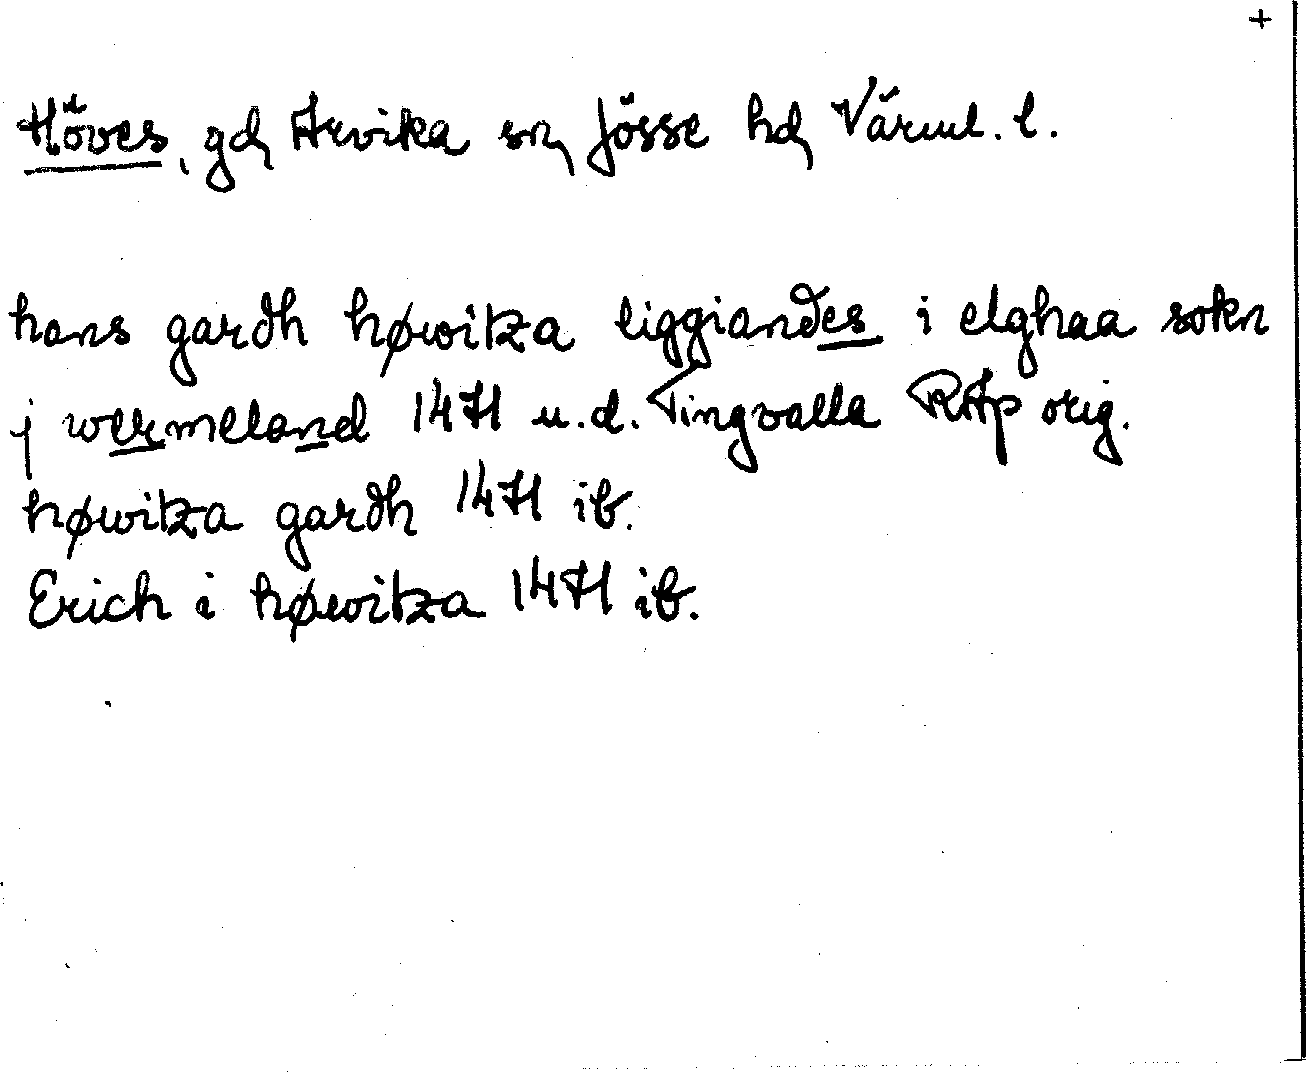 +
Höves, gd Arvika sn Jösse hd Värml. l.
hans gardh høwitza liggiandes i elghaa sokn
j wermeland 1471 u.d. Tingvalla RAp orig.
høwitza gardh 1471 ib.
Erich i høwitza 1471 ib.